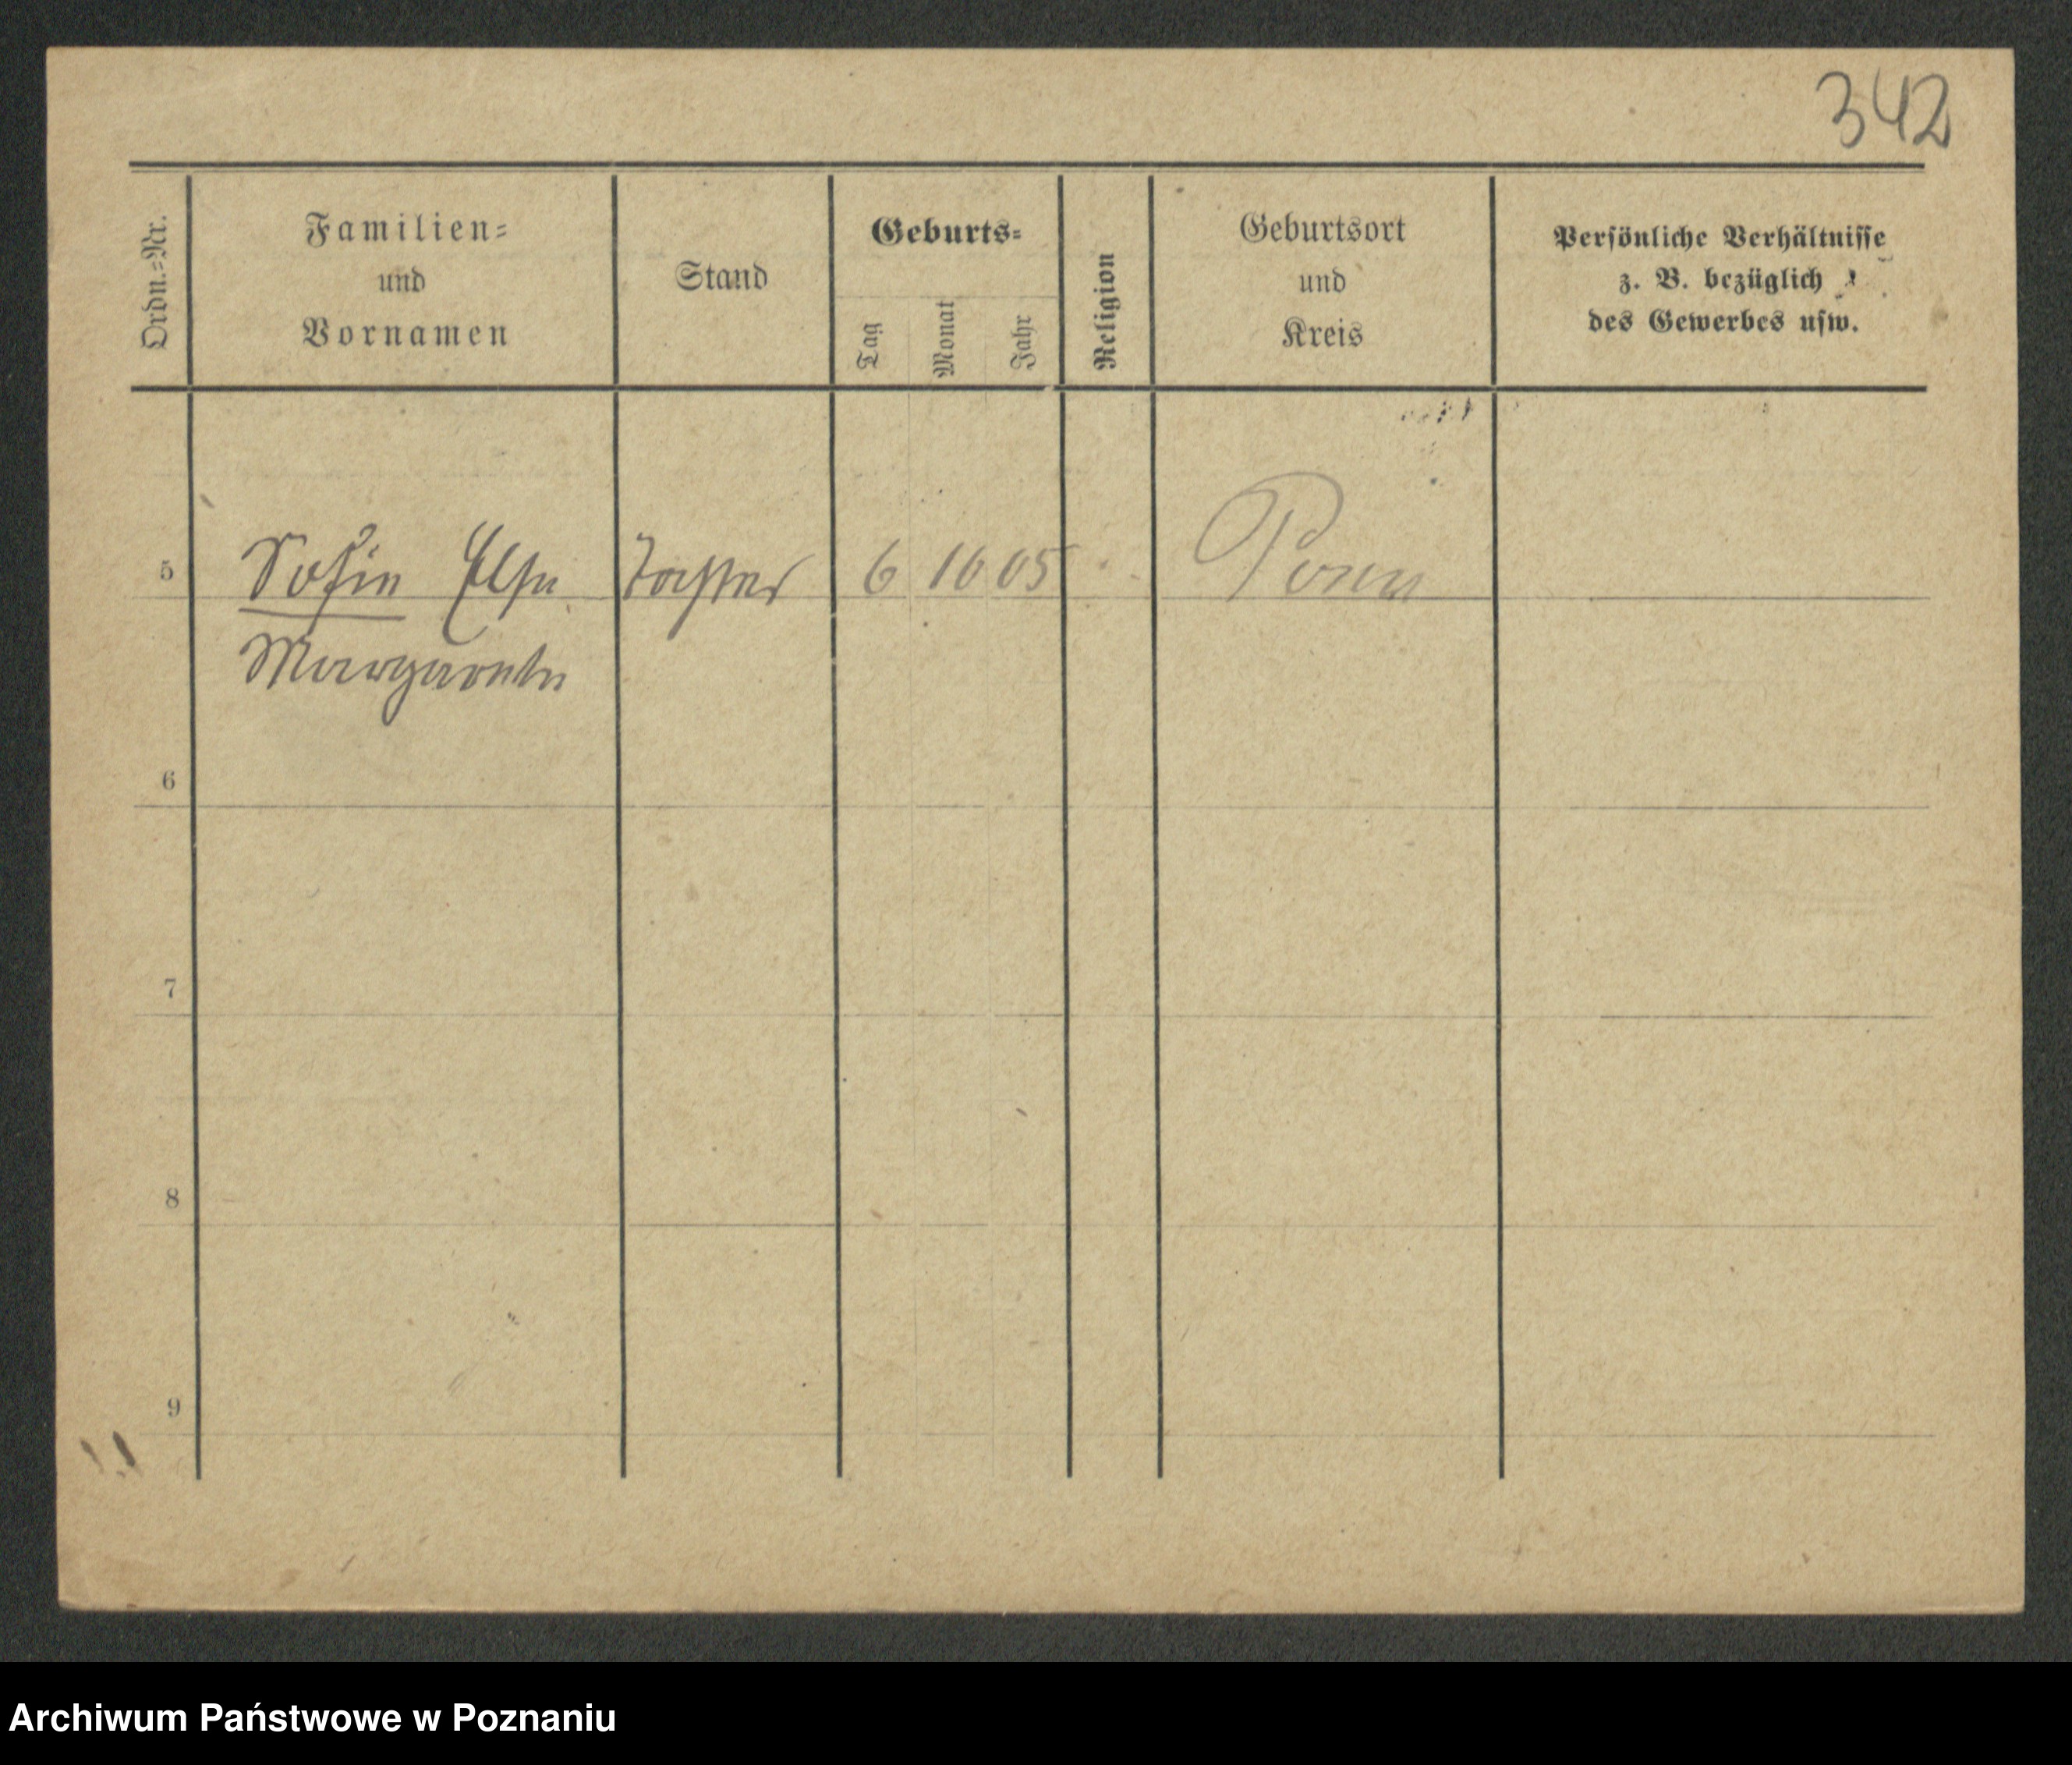 342
Ordn.=Nr.
Familien=
und
Vornamen
Stand
Geburts=
Tag
Monat
Jahr
Religion
Geburtsort
und
Kreis
Persönliche Verhältnisse
z. B. bezüglich
des Gewerbes usw.
5 Sofie Else Tochter 6 10 05 Posen
Margarete
6
7
8
9
Archiwum Państwowe w Poznaniu